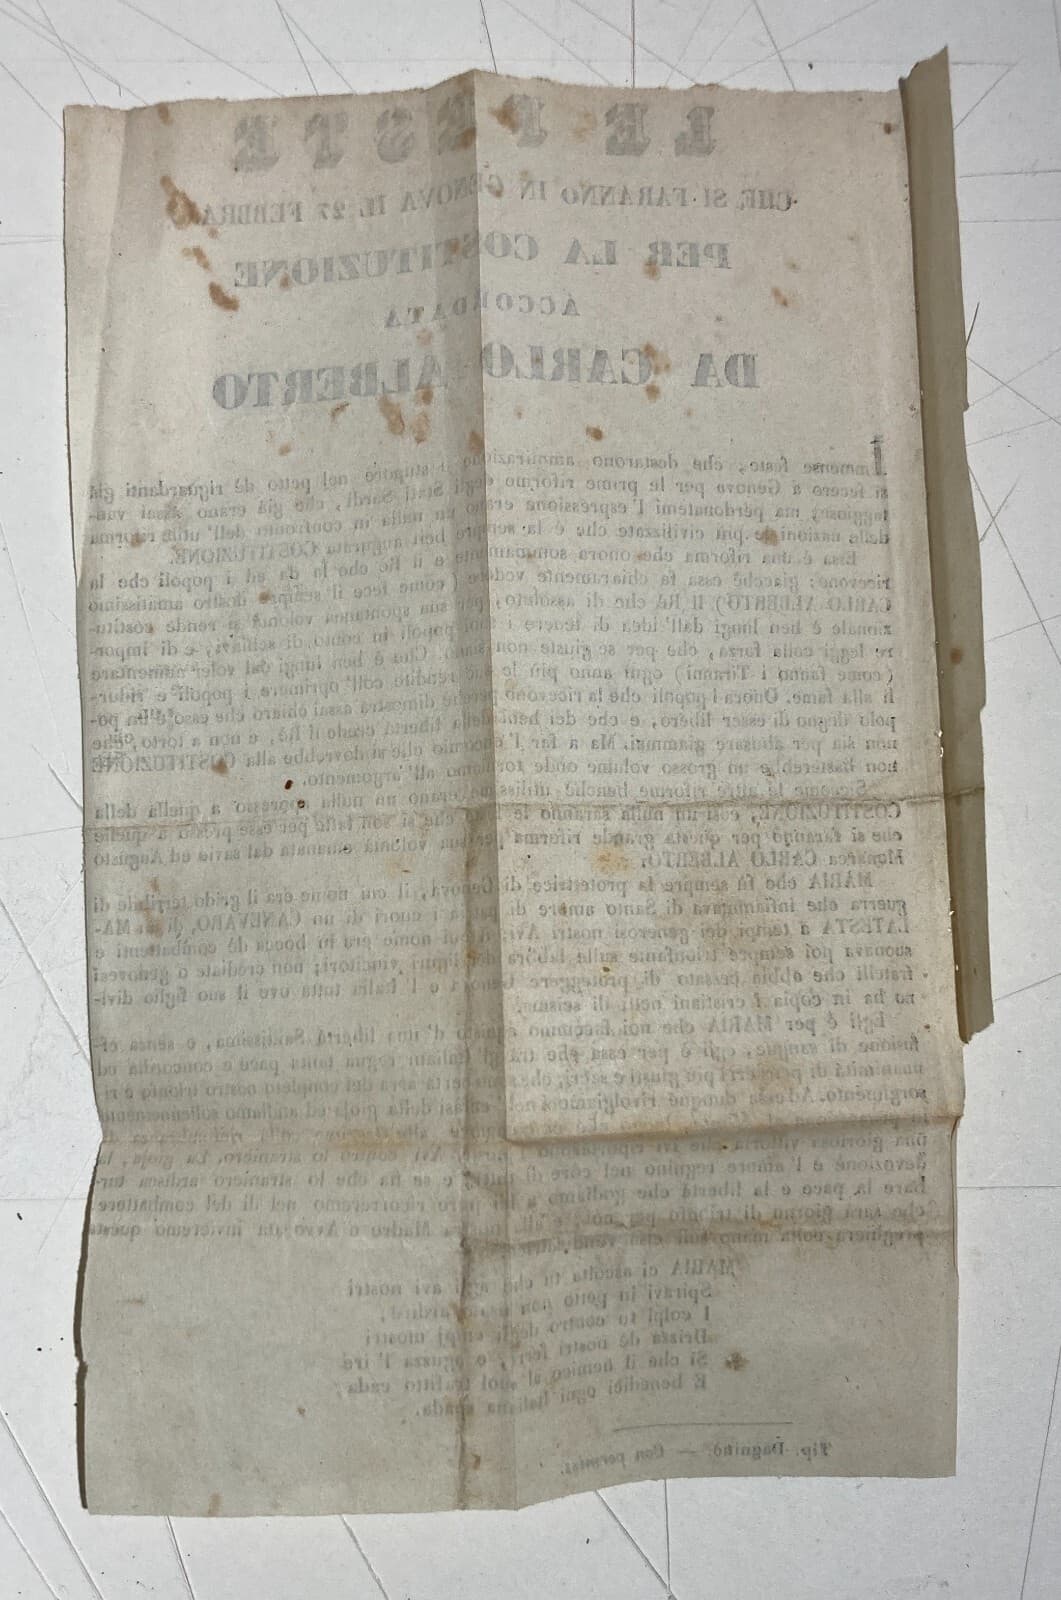 LE FESTE
CHE SI FARANNO IN GENOVA IL 27 FEBBRAIO
PER LA COSTITUZIONE
ACCORDATA
DA CARLO ALBERTO
Immense feste, che destarono ammirazione e stupore nel petto dè riguardanti già
si fecero a Genova per le prime riforme degli Stati Sardi, che già erano assai van-
taggiose; ma perdonatemi l'espressione erano un nulla in confronto dell'utile riforma
delle nazioni le più civilizzate che è la sempre ben augurata COSTITUZIONE.
Essa è una riforma che onora sommamente e il Re che la dà ed i popoli che la
ricevono; giacchè essa fa chiaramente vedere (come fece il sempre nostro amatissimo
CARLO ALBERTO) il Rè che di assoluto, per sua spontanea volontà si rende costitu-
zionale è ben lungi dall'idea di tenere i suoi popoli in conto di schiavi, e di impor-
re leggi colla forza, che per se giuste non siano. Che è ben lungi dal voler aumentare
(come fanno i Tiranni) ogni anno più le sue rendite coll'opprimere i popoli e ridur-
li alla fame. Onora i popoli che la ricevono perchè dimostra assai chiaro che esso è un po-
polo degno di esser libero, e che dei beni della libertà crede il Rè, e non a torto, che
non sia per abusare giammai. Ma a far l'encomio che si dovrebbe alla COSTITUZIONE
non basterebbe un grosso volume onde torniamo all'argomento.
Siccome le altre riforme benchè utilissime erano un nulla appresso a quella della
COSTITUZIONE, così un nulla saranno le feste che si son fatte per esse presso a quelle
che si faranno per questa grande riforma per sua volontà emanata dal savio ed Augusto
Monarca CARLO ALBERTO.
MARIA che fù sempre la protettrice di Genova, il cui nome era il grido terribile di
guerra che infiammava di Santo amore di patria i cuori di un CANEVARO, di un MA-
LATESTA a tempi dei generosi nostri Avi, il cui nome pria in bocca dè combattenti e
suonava poi sempre trionfante sulle labbra dei ligure vincitori; non crediate o genovesi
fratelli che abbia cessato di proteggere Genova e l'Italia tutta ove il suo figlio divi-
no ha in copia i cristiani netti di scisma.
Egli è per MARIA che noi facciamo acquisto d'una libertà Santissima, e senza ef-
fusione di sangue, egli è per essa che tra gl'italiani regna tanta pace e concordia ed
unanimità di pensieri più giusti e santi, che
sorgimento. Adesso dunque rivolgiamoci nell'estasi della gioja ed andiamo solennemente
una gloriosa vittoria che ivi riportarono i nostri Avi contro lo straniero. La gioja, la
devozione e l'amore regnino nel core di tutti, e se fia che lo straniero ardisca tur-
bare la pace e la libertà che godiamo a lei pure ricorreremo nel dì del combattere,
che sarà giorno di trionfo per noi, e alla nostra Madre e Avvocata invieremo questa
preghiera colla mano sull'elsa vendicatrice
MARIA ci ascolta tu che agli avi nostri
Spiravi in petto non usato ardire,
I colpi tu contro degli empj mostri
Drizza dè nostri ferri, e aguzza l'ire
Sì che il nemico al suol trafitto cada,
E benedici ogni Italiana spada.
Tip. Dagnino — Con permiss.